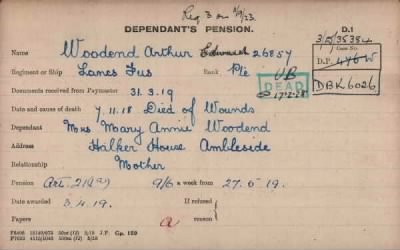 Reg 3 on 4/9/23.
DEPENDANT'S PENSION.
D.1
3/D/35384
Case No.
Name Woodend Arthur Edward 26857
D.P. 476 W
Regiment or Ship Lancs Fus Rank, Pte UB
DEAD
17·2·28
DBK6026
Documents received from Paymaster 31.3.19
Date and cause of death 7.11.18 Died of Wounds
Dependant Mrs Mary Annie Woodend
Address Halker House Ambleside
Relationship Mother
Pension Art. 21(a) 9/6 a week from 27.5.19.
Date awarded 3.4.19. If refused
Papers a reason